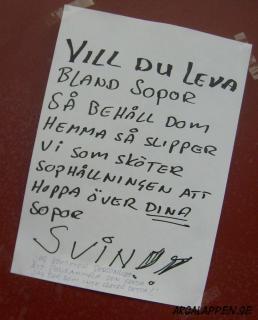 VILL DU LEVA
BLAND SOPOR
SÅ BEHÅLL DOM
HEMMA SÅ SLIPPER
VI SOM SKÖTER
SOPHÅLLNINGEN ATT
HOPPA ÖVER DINA
SOPOR
SVIN
ARGALAPPEN.SE